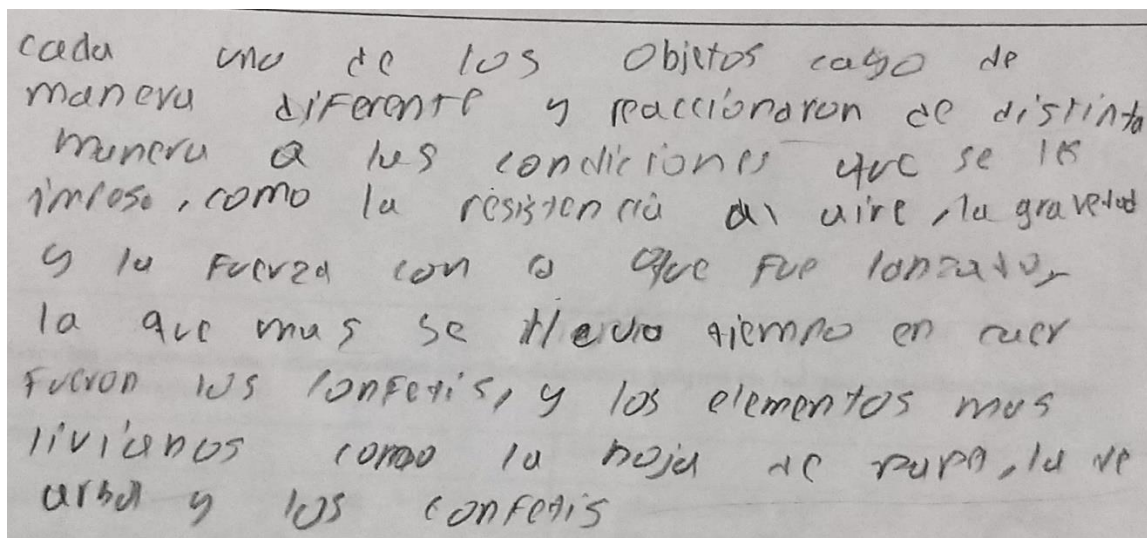 cada uno de los objetos cayo de
manera diferente y reaccionaron de distinta
manera a las condiciones que se les
imposo, como la resistencia al aire, la gravedad
y la fuerza con a que fue lanzado,
la que mas se llevo tiempo en caer
fueron los confetis, y los elementos mas
livianos como la hoja de papa, la de
arbol y los confetis